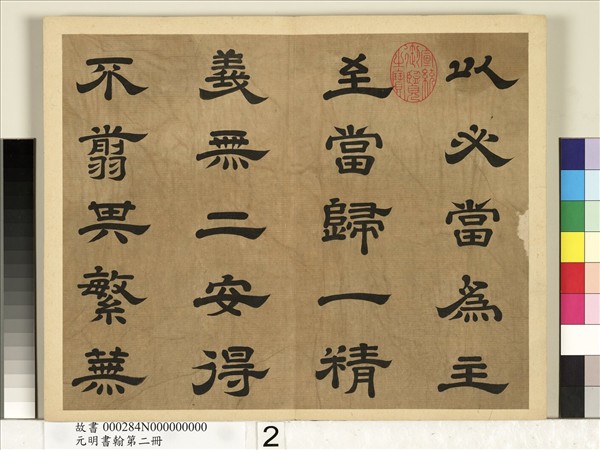 以必當爲主
至當歸一精
義無二安得
不翦其繁蕪
宣統
御覽
之寶
故書 000284N000000000
元明書翰第二冊
2